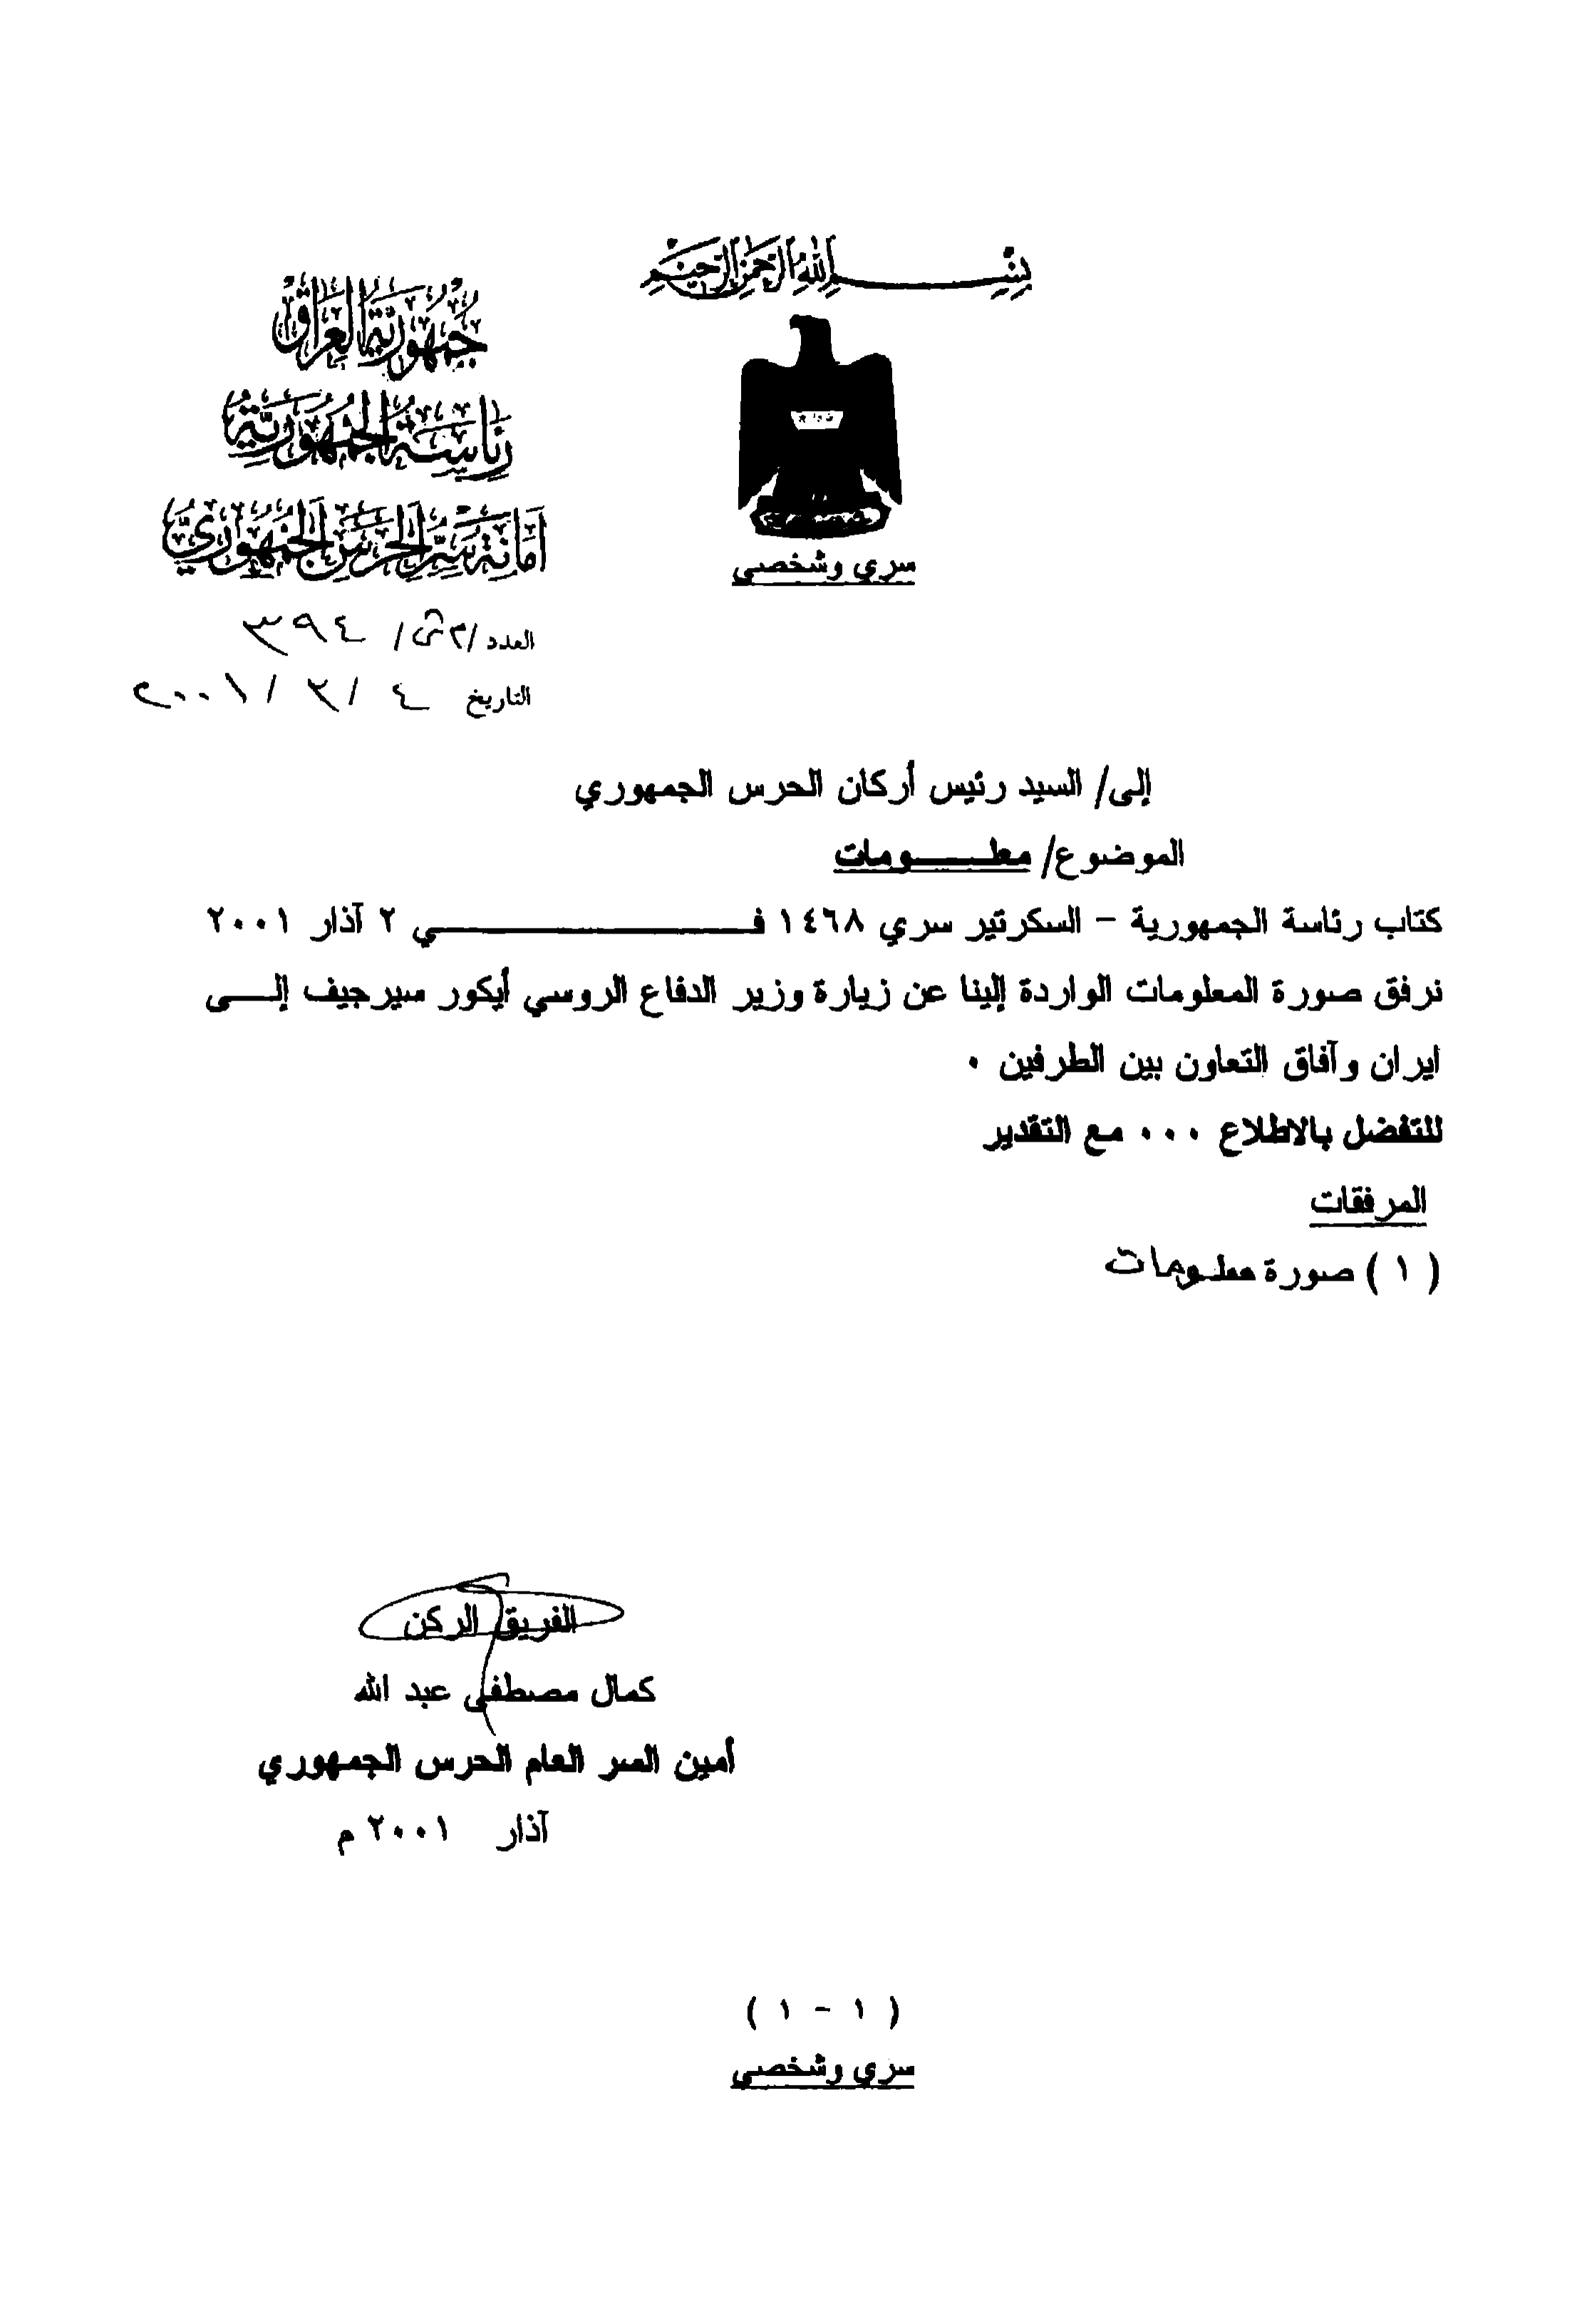 بسم الله الرحمن الرحيم
جمهورية العراق
رئاسة الجمهورية
أمانة سر الحرس الجمهوري
سري وشخصي
العدد / ٣٩٤
التاريخ ٤ / ٣ / ٢٠٠١
إلى/ السيد رئيس أركان الحرس الجمهوري
الموضوع/ معلـــومات
كتاب رئاسة الجمهورية - السكرتير سري ١٤٦٨ فـــــــي ٢ آذار ٢٠٠١
نرفق صورة المعلومات الواردة إلينا عن زيارة وزير الدفاع الروسي أيكور سيرجيف إلـــى
ايران وآفاق التعاون بين الطرفين ٠
للتفضل بالاطلاع ٠٠٠ مع التقدير
المرفقات
( ١ ) صورة معلومات
الفريق الركن
كمال مصطفى عبد الله
أمين السر العام الحرس الجمهوري
آذار ٢٠٠١ م
( ١ - ١ )
سري وشخصي